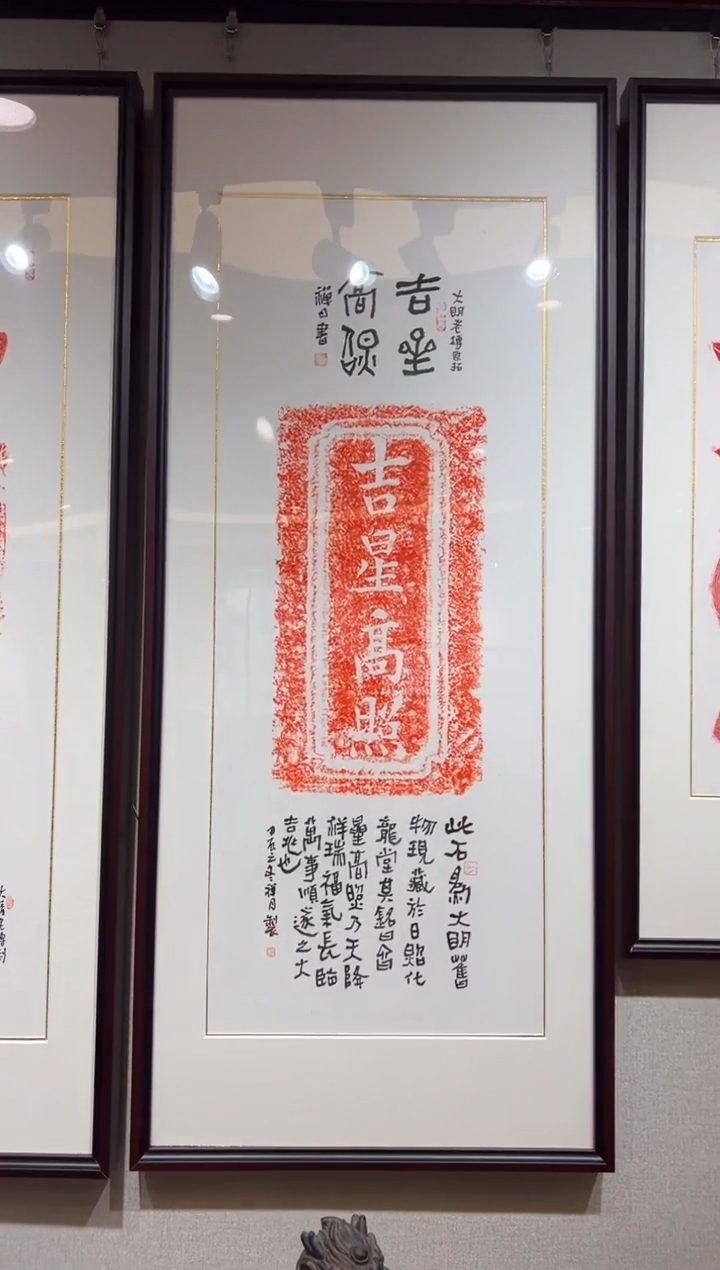 大明老磚原拓
吉星
高照
禪月書
吉星高照
此石爲大明舊
物現藏於日照化
龍堂其銘曰吉
星高照乃天降
祥瑞福氣長臨
萬事順遂之大
吉兆也
禪月製